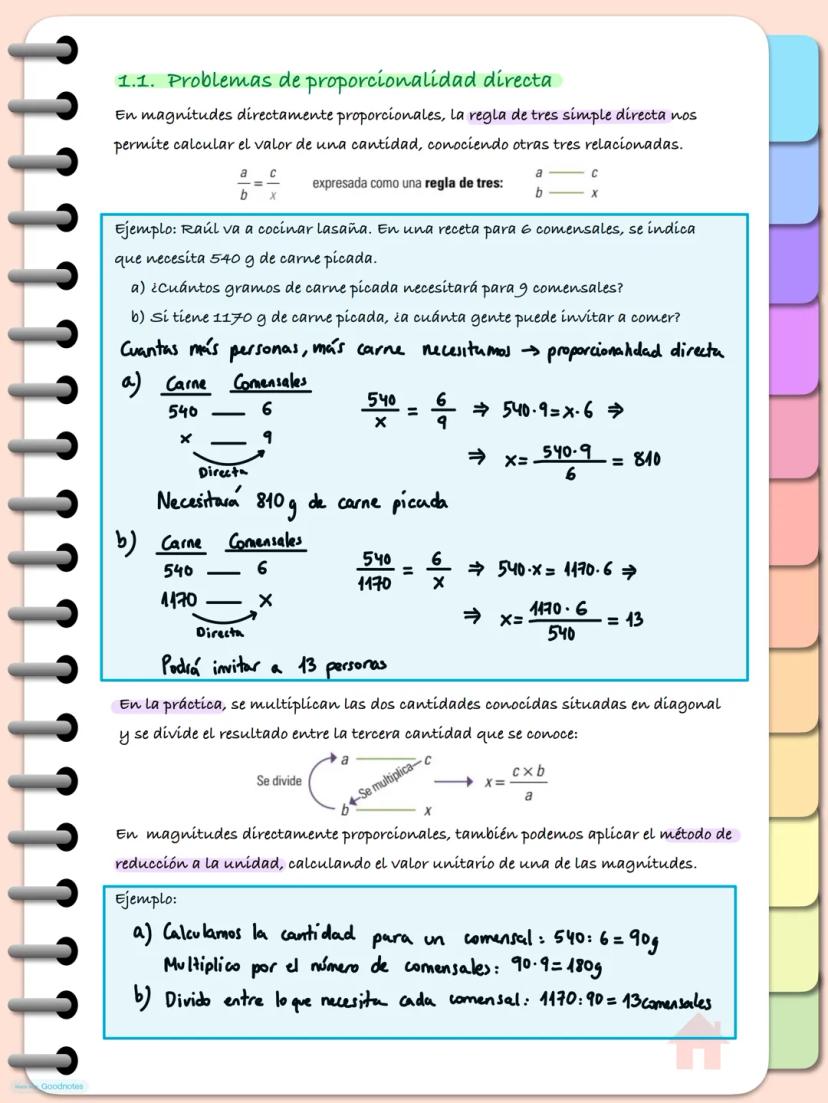 1.1. Problemas de proporcionalidad directa
En magnitudes directamente proporcionales, la regla de tres simple directa nos
permite calcular el valor de una cantidad, conociendo otras tres relacionadas.
a/b = c/x expresada como una regla de tres: a — c
b — x
Ejemplo: Raúl va a cocinar lasaña. En una receta para 6 comensales, se indica
que necesita 540 g de carne picada.
a) ¿Cuántos gramos de carne picada necesitará para 9 comensales?
b) Si tiene 1170 g de carne picada, ¿a cuánta gente puede invitar a comer?
Cuantas más personas, más carne necesitamos → proporcionalidad directa
a) Carne Comensales
540 — 6
x — 9
Directa
540/x = 6/9 ⇒ 540·9=x·6 ⇒
⇒ x= 540·9/6 = 810
Necesitará 810g de carne picada
b) Carne Comensales
540 — 6
1170 — x
Directa
540/1170 = 6/x ⇒ 540·x= 1170·6 ⇒
⇒ x= 1170·6/540 = 13
Podrá invitar a 13 personas
En la práctica, se multiplican las dos cantidades conocidas situadas en diagonal
y se divide el resultado entre la tercera cantidad que se conoce:
Se divide a — c
Se multiplica → x = c × b/a
b — x
En magnitudes directamente proporcionales, también podemos aplicar el método de
reducción a la unidad, calculando el valor unitario de una de las magnitudes.
Ejemplo:
a) Calculamos la cantidad para un comensal: 540:6=90g
Multiplico por el número de comensales: 90·9=180g
b) Divido entre lo que necesita cada comensal: 1170:90=13comensales
Made with Goodnotes